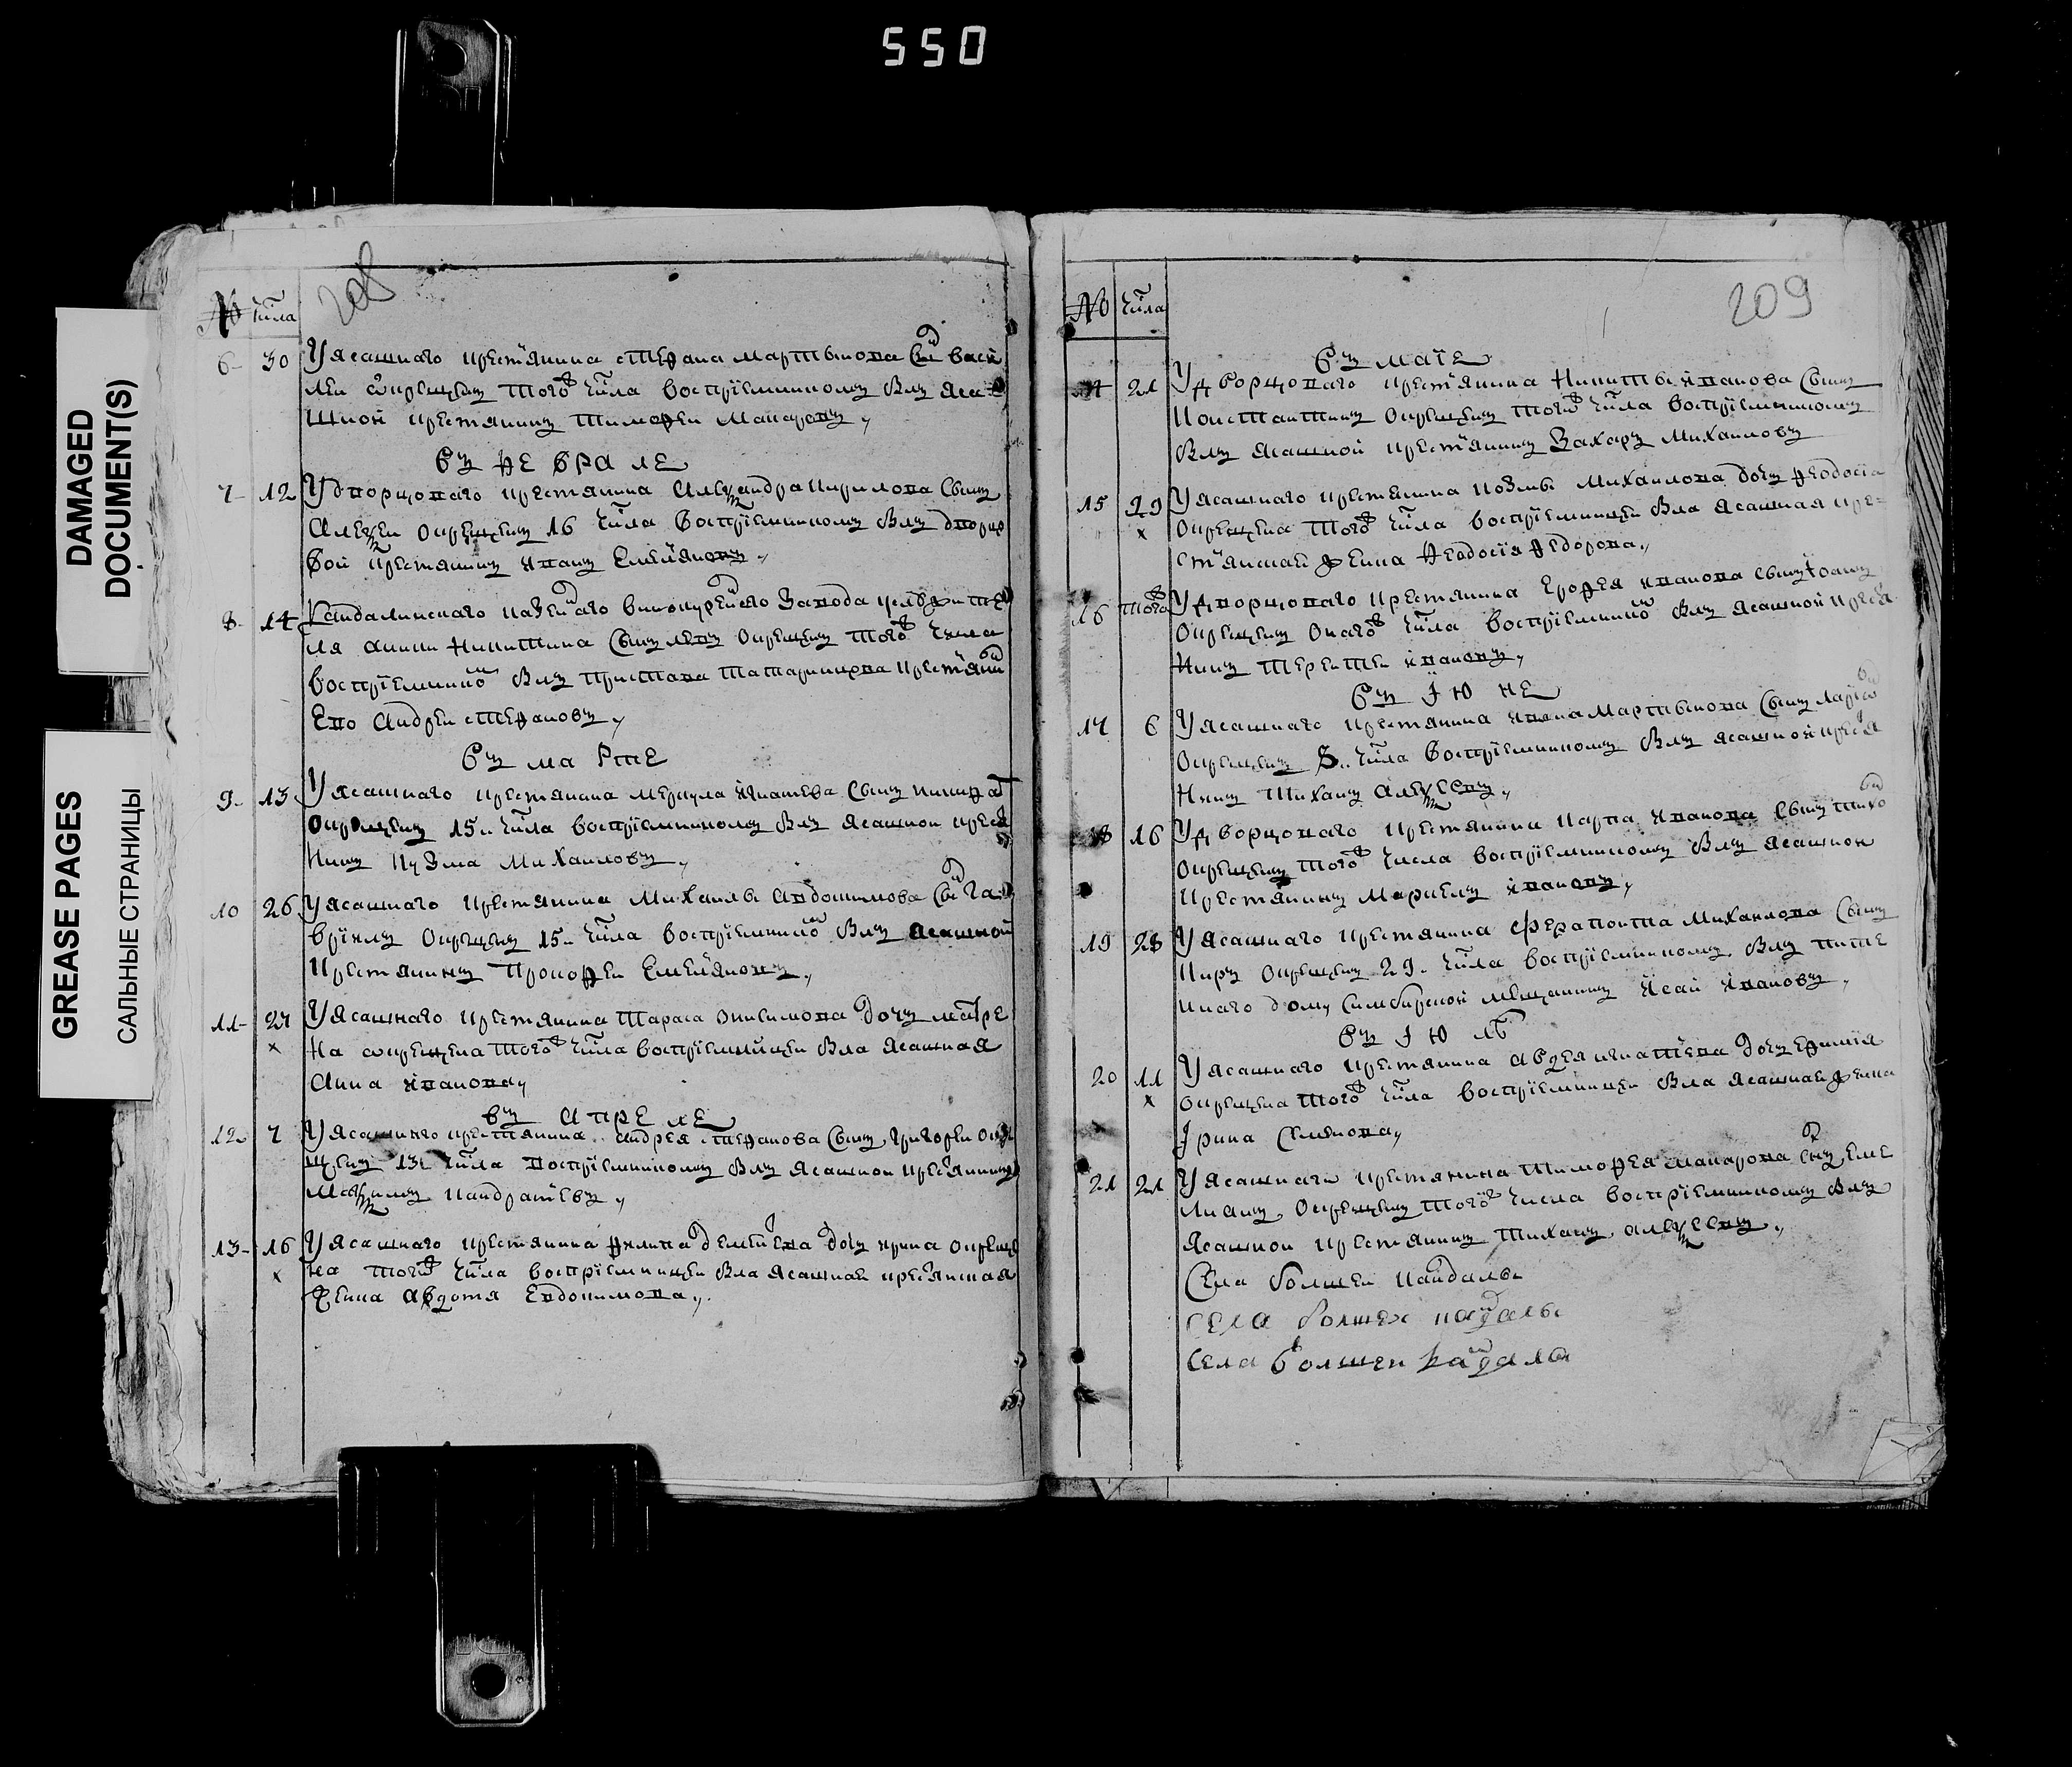 550
DAMAGED
DOCUMENT(S)
GREASE PAGES
САЛЬНЫЕ СТРАНИЦЫ
208
№ числа
6 30 У ясашнаго крестьянина Степана Мартынова сынъ Васи
лей окрещенъ того числа восприемникомъ былъ яса
шной крестянинъ Тимофей Макаровъ
въ феврале
7 12 У дворцоваго крестянина Александра Кирилова сынъ
Алексей окрещенъ 16 числа восприемникомъ былъ дворцо
вой крестянинъ Иванъ Емельяновъ
8 14 Кандалинского казеннаго винокуренного завода
ля Никитина сынъ Левъ окрещенъ того числа
восприемникомъ былъ крестьянинъ
ево Андрей Степановъ
въ марте
9 13 У ясашнаго крестянина Меркула Игнатева сынъ Никифоръ
окрещенъ 15 числа восприемникомъ былъ ясашной кресья
нинъ Кузма Михаиловъ
10 26 У ясашнаго крестянина Михаилы Авдокимова сынъ Га
врiилъ окрещенъ 15 числа восприемникомъ былъ ясашной
крестянинъ Прокофей Емельяновъ
11 27 У ясашнаго крестянина Тараса Онисимова дочь Матре
х на окрещена того числа восприемницей была ясашная
Анна Иванова
въ апреле
12 7 У ясашнаго крестянина Андрея Степанова сынъ Григорей окре
щенъ 13 числа восприемникомъ былъ ясашной кресьянинъ
Максимъ Кандратьевъ
13 16 У ясашнаго крестянина Филипа Дементьева дочь Ирина окреще
х на того числа восприемницей была ясашная кресьянская
жена Авдотя Евдокимова
209
№ числа
въ маiе
14 21 У дворцоваго крестьянина Никиты Иванова сынъ
Константинъ окрещенъ того числа восприемникомъ
былъ ясашной крестьянинъ Захаръ Михаиловъ
15 29 У ясашнаго крестянина Козмы Михаилова дочь Феодосiа
х окрещена того числа восприемницей была ясашная кре
стьянская жена Феодосiя Федорова
16 того У дворцоваго крестянина Ерофея Иванова сынъ Iоанъ
окрещенъ онаго числа восприемникомъ былъ ясашной кресья
нинъ Терентей Ивановъ
въ iюне
17 6 У ясашнаго крестянина Ивана Мартынова сынъ
окрещенъ 8 числа восприемникомъ былъ ясашной кресья
нинъ Тиханъ Алексеевъ
18 16 У дворцоваго крестянина Карпа Иванова сынъ Тихо
окрещенъ того числа восприемникомъ былъ ясашной
крестьянинъ Маркелъ Ивановъ
19 28 У ясашнаго крестянина Ферапонта Михаилова сынъ
Киръ окрещенъ 29 числа восприемникомъ былъ пите
инаго дому симбирской мещанинъ Исай Ивановъ
въ iюл
20 11 У ясашнаго крестянина Авдея Игнатева дочь Ефимiя
х окрещена того числа восприемницей была ясашная жена
Iрина Семенова
21 21 У ясашнаго крестянина Тимофея Макарова сынъ Еме
лианъ окрещенъ того числа восприемникомъ былъ
ясашной крестянинъ Тиханъ Алексеевъ
Села болшеи кандалы
села болшеи кандалы
села болшеи кандалы